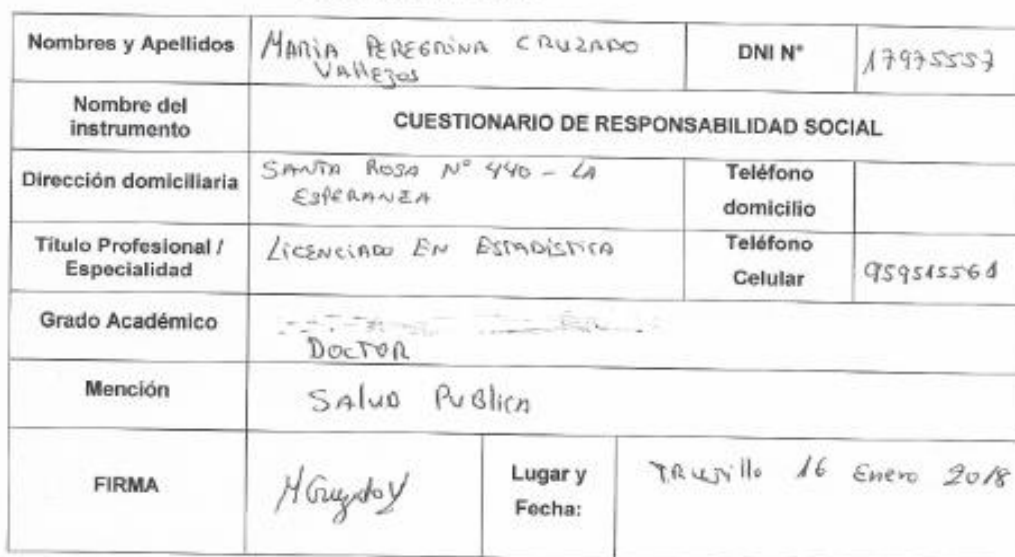 Nombres y Apellidos
MARIA PEREGRINA CRUZADO
VALLEJOS
DNI N°
17975557
Nombre del
instrumento
CUESTIONARIO DE RESPONSABILIDAD SOCIAL
Dirección domiciliaria
SANTA ROSA N° 440 - LA
ESPERANZA
Teléfono
domicilio
Título Profesional /
Especialidad
LICENCIADO EN ESTADÍSTICA
Teléfono
Celular
959515561
Grado Académico
DOCTOR
Mención
SALUD PUBLICA
FIRMA
Lugar y
Fecha:
TRUJILLO 16 Enero 2018